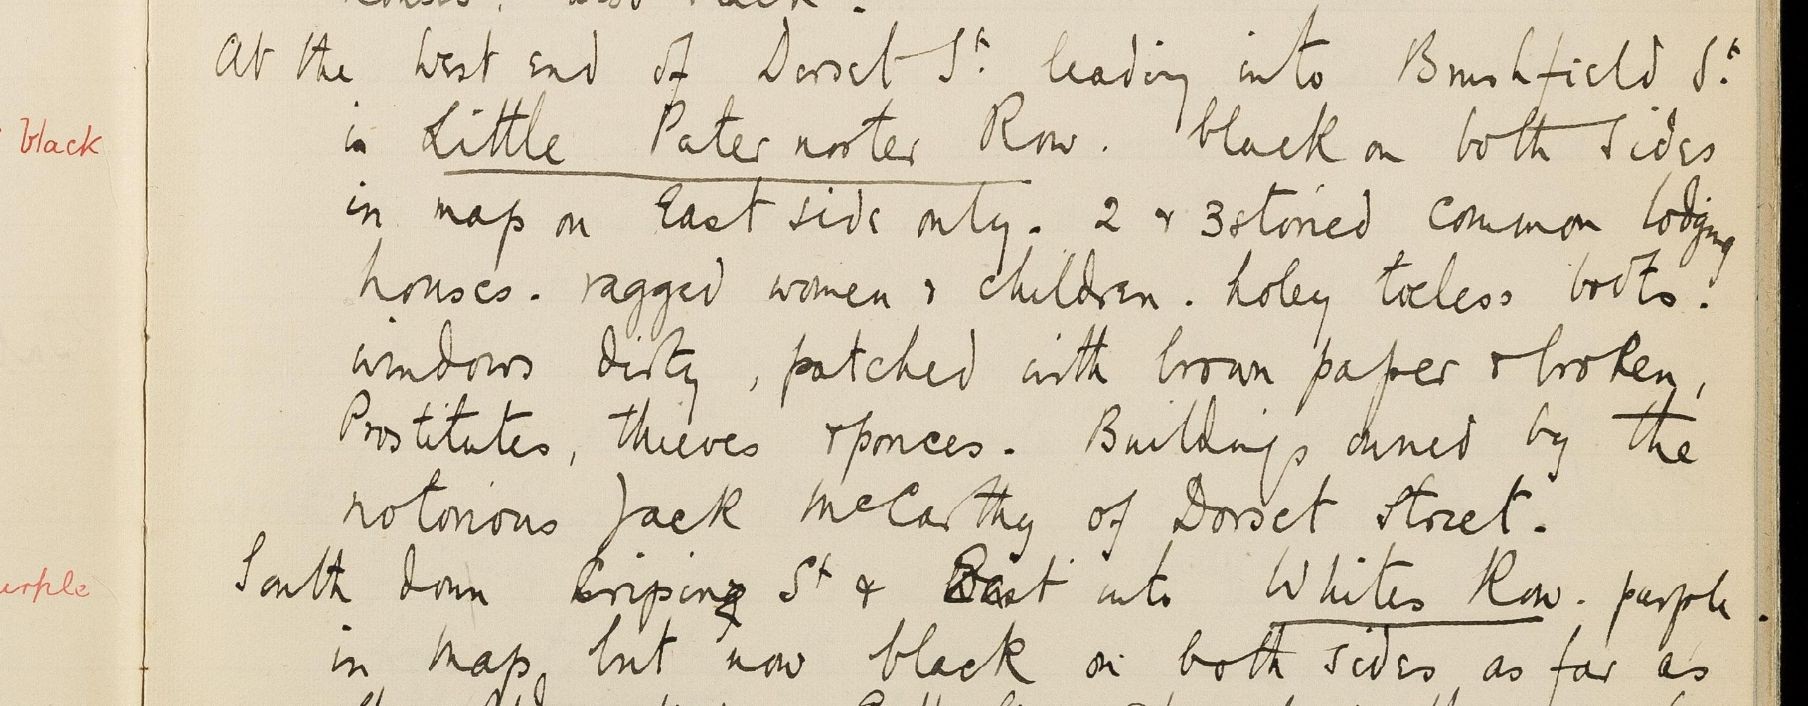 At the West End of Dorset St. leading into Brushfield St.
black
is Little Paternoster Row. black on both sides
in map on East side only. 2 & 3 storied common lodging
houses. ragged women & children. holey toeless boots.
windows dirty, patched with brown paper & broken,
Prostitutes, thieves & ponces. Buildings owned by the
notorious Jack McCarthy of Dorset Street.
South down Crispin St & East into Whites Row. purple
urple
in map, but now black on both sides as far as